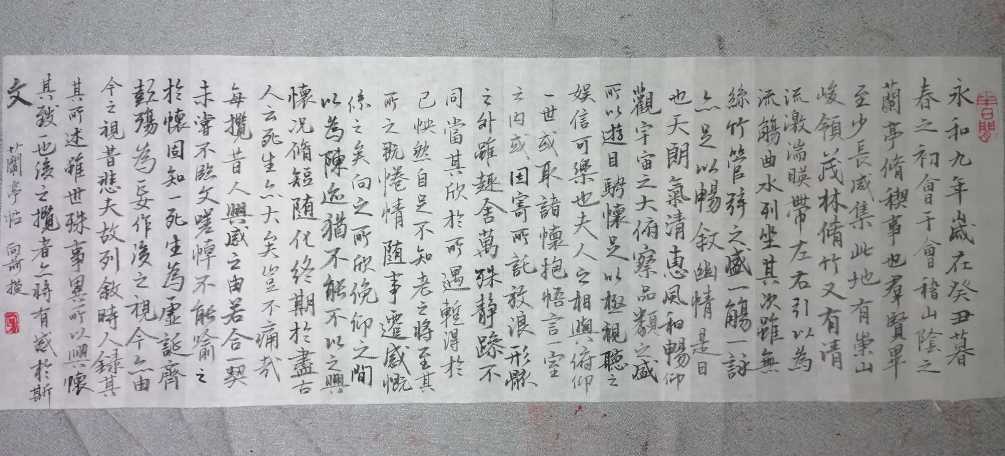 永和九年歲在癸丑暮
春之初會于會稽山陰之
蘭亭脩稧事也羣賢畢
至少長咸集此地有崇山
峻領茂林脩竹又有清
流激湍暎帶左右引以為
流觴曲水列坐其次雖無
絲竹管弦之盛一觴一詠
亦足以暢敘幽情是日
也天朗氣清惠風和暢仰
觀宇宙之大俯察品類之盛
所以遊目騁懷足以極視聽之
娛信可樂也夫人之相與俯仰
一世或取諸懷抱悟言一室
之內或因寄所託放浪形骸
之外雖趣舍萬殊静躁不
同當其欣於所遇蹔得於
己怏然自足不知老之將至其
所之既惓情随事遷感慨
係之矣向之所欣俛仰之閒
以為陳迹猶不能不以之興
懷況脩短随化終期於盡古
人云死生亦大矣豈不痛哉
每攬昔人興感之由若合一契
未嘗不臨文嗟悼不能喻之
於懷固知一死生為虛誕齊
彭殤為妄作後之視今亦由
今之視昔悲夫故列敘時人錄其
其所述雖世殊事異所以興懷
其致一也後之攬者亦將有感於斯
文
蘭亭帖